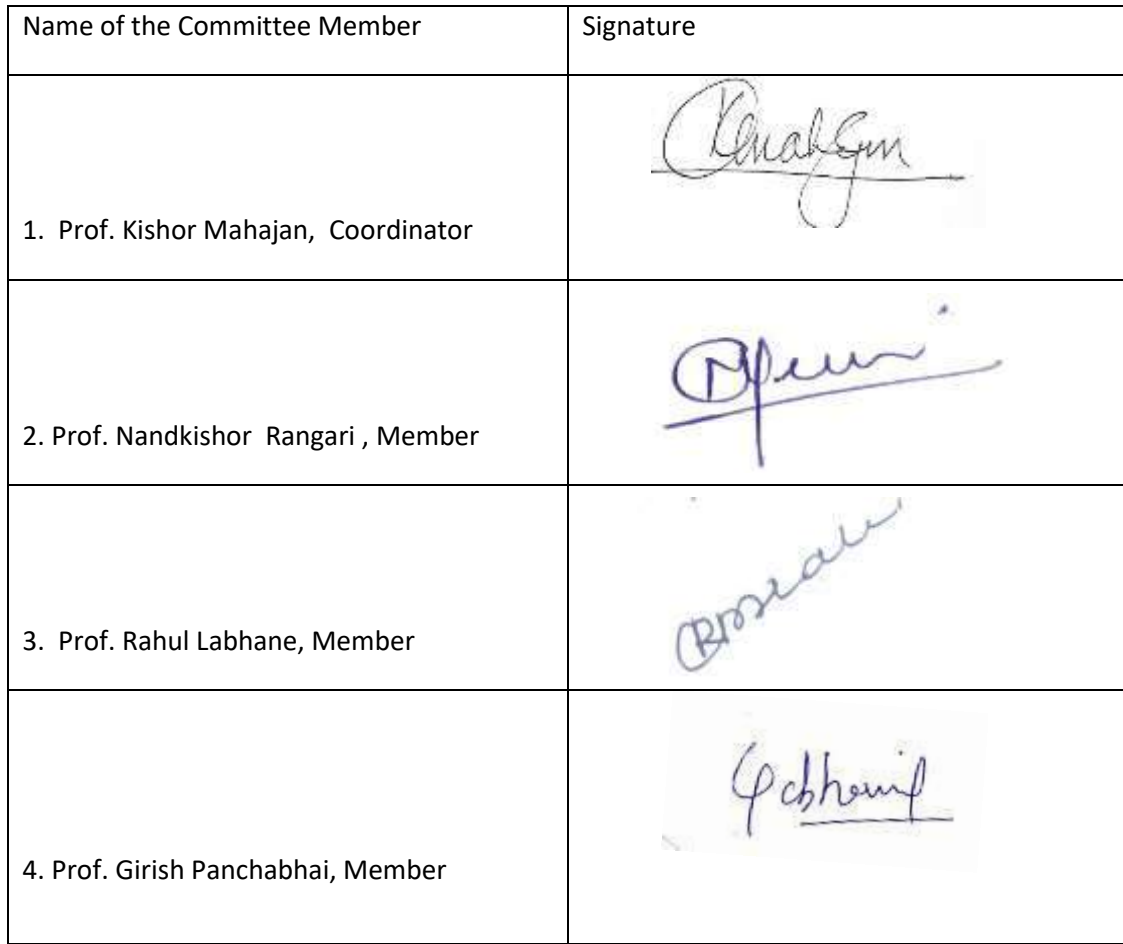 Name of the Committee Member Signature
1. Prof. Kishor Mahajan, Coordinator
2. Prof. Nandkishor Rangari , Member
3. Prof. Rahul Labhane, Member
4. Prof. Girish Panchabhai, Member